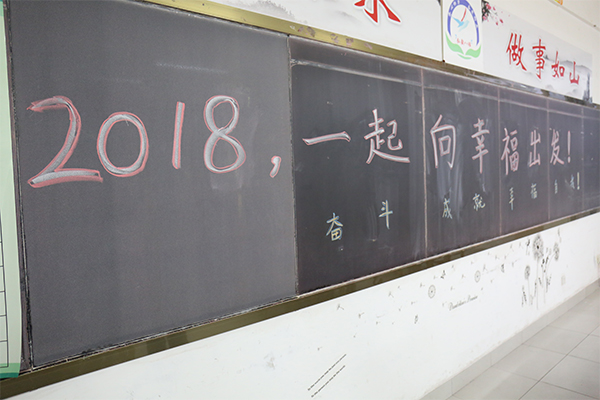 做事如山
2018，一起向幸福出发！
奋斗成就幸福